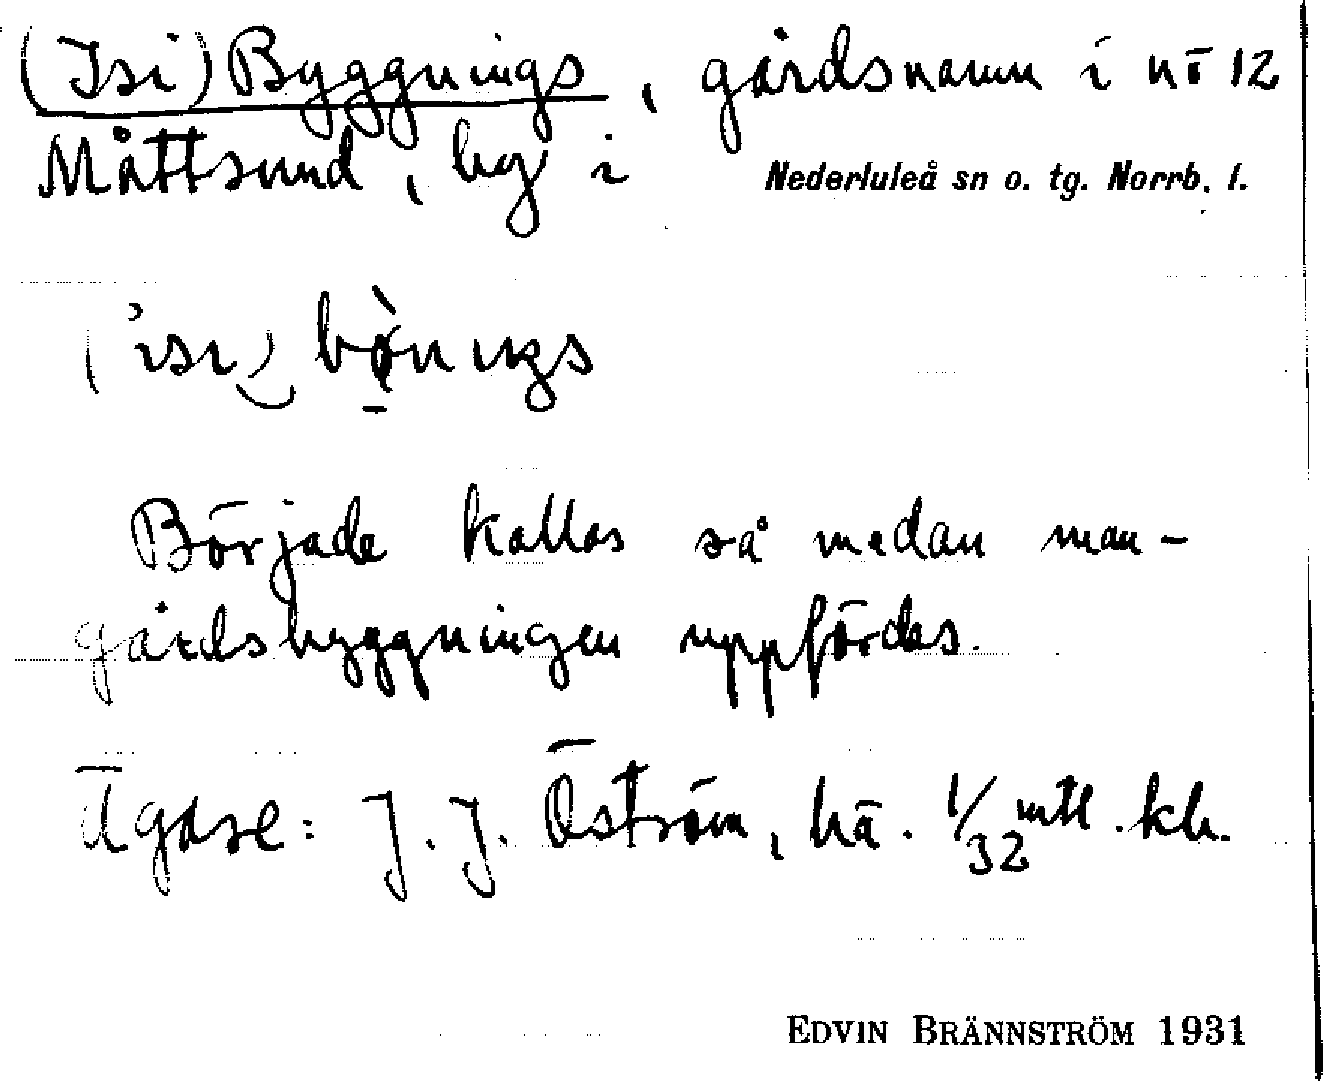 (Isi) Byggnings, gårdsnamn i nr 12
Måttsund, by i Nederluleå sn o. tg. Norrb. l.
Började kallas så medan man-
gårdsbyggningen uppfördes.
Ägare: J. J. Öström, hä. 1/32 mtl. kh.
EDVIN BRÄNNSTRÖM 1931